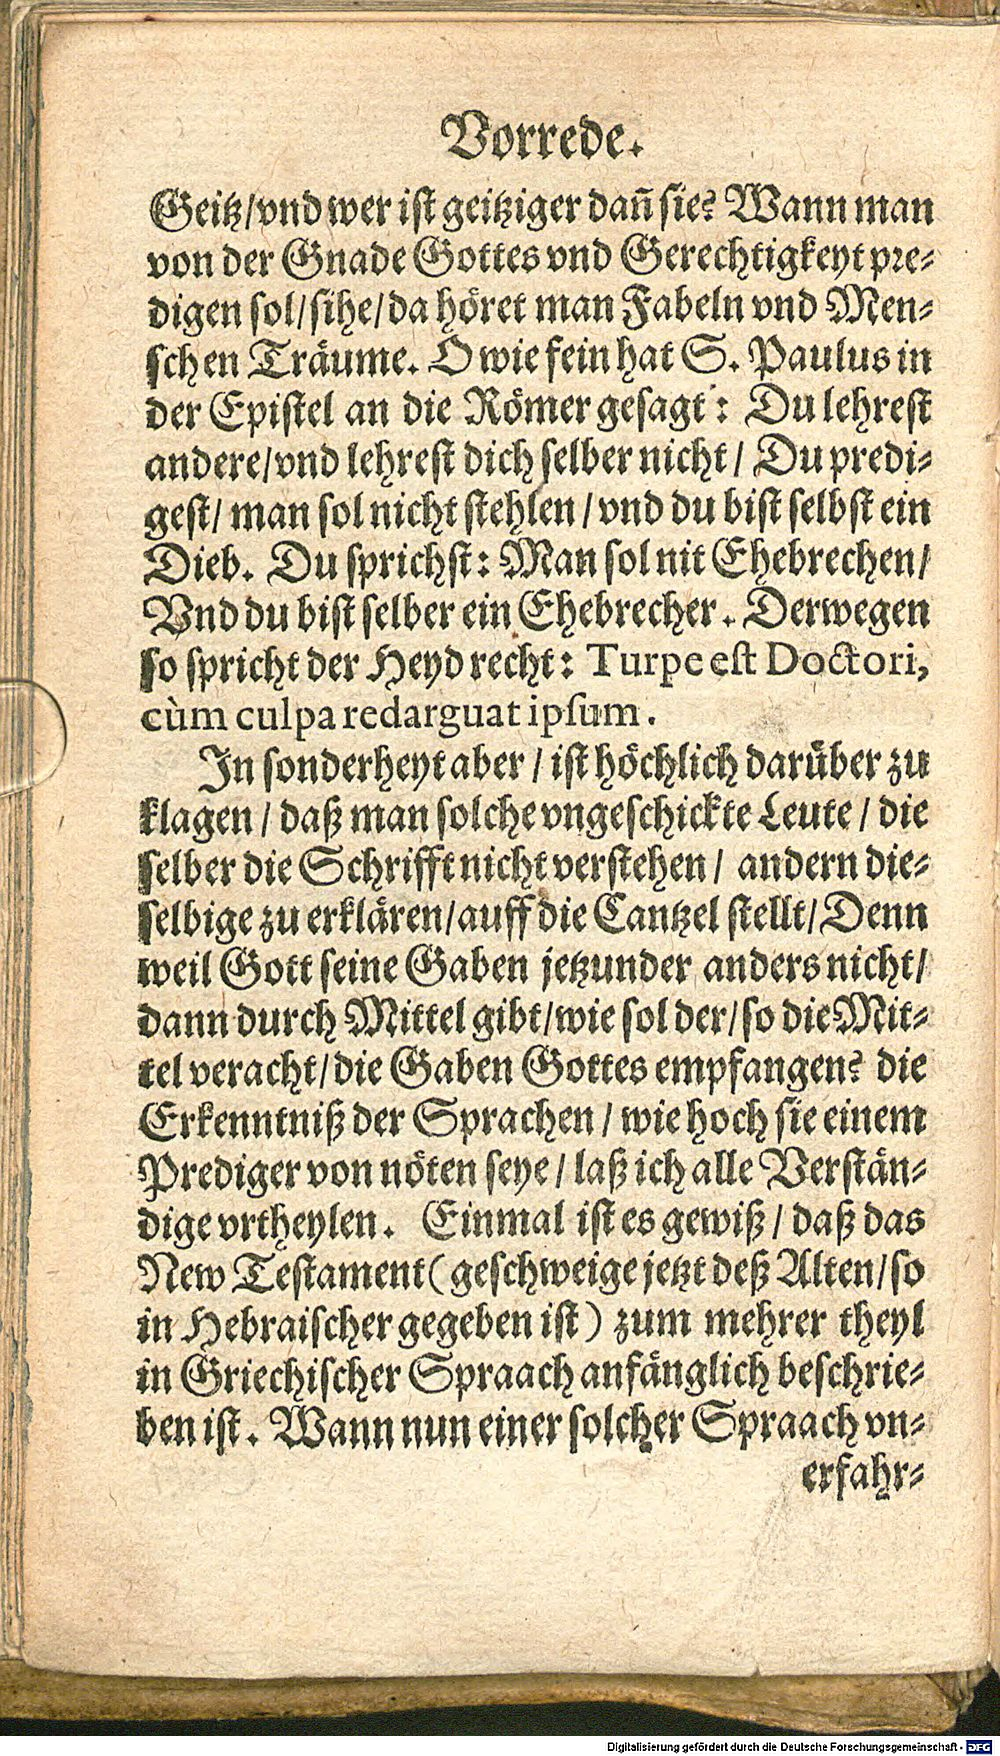 Vorrede.
Geitz/vnd wer ist geitziger dañ sie? Wann man
von der Gnade Gottes vnd Gerechtigkeyt pre-
digen sol/sihe/da höret man Fabeln vnd Men-
schen Träume. O wie fein hat S. Paulus in
der Epistel an die Römer gesagt: Du lehrest
andere/vnd lehrest dich selber nicht/ Du predi-
gest/ man sol nicht stehlen/vnd du bist selbst ein
Dieb. Du sprichst: Man sol nit Ehebrechen/
Vnd du bist selber ein Ehebrecher. Derwegen
so spricht der Heyd recht: Turpe est Doctori,
cùm culpa redarguat ipsum.
In sonderheyt aber/ ist höchlich darüber zu
klagen/ daß man solche vngeschickte Leute/ die
selber die Schrifft nicht verstehen/ andern die-
selbige zu erklären/auff die Cantzel stellt/Denn
weil Gott seine Gaben jetzunder anders nicht/
dann durch Mittel gibt/wie sol der/so die Mit-
tel veracht/die Gaben Gottes empfangen? die
Erkenntniß der Sprachen/ wie hoch sie einem
Prediger von nöten seye/ laß ich alle Verstän-
dige vrtheylen. Einmal ist es gewiß/ daß das
New Testament (geschweige jetzt deß Alten/so
in Hebraischer gegeben ist) zum mehrer theyl
in Griechischer Spraach anfänglich beschrie-
ben ist. Wann nun einer solcher Spraach vn-
erfahr-
Digitalisierung gefördert durch die Deutsche Forschungsgemeinschaft - DFG